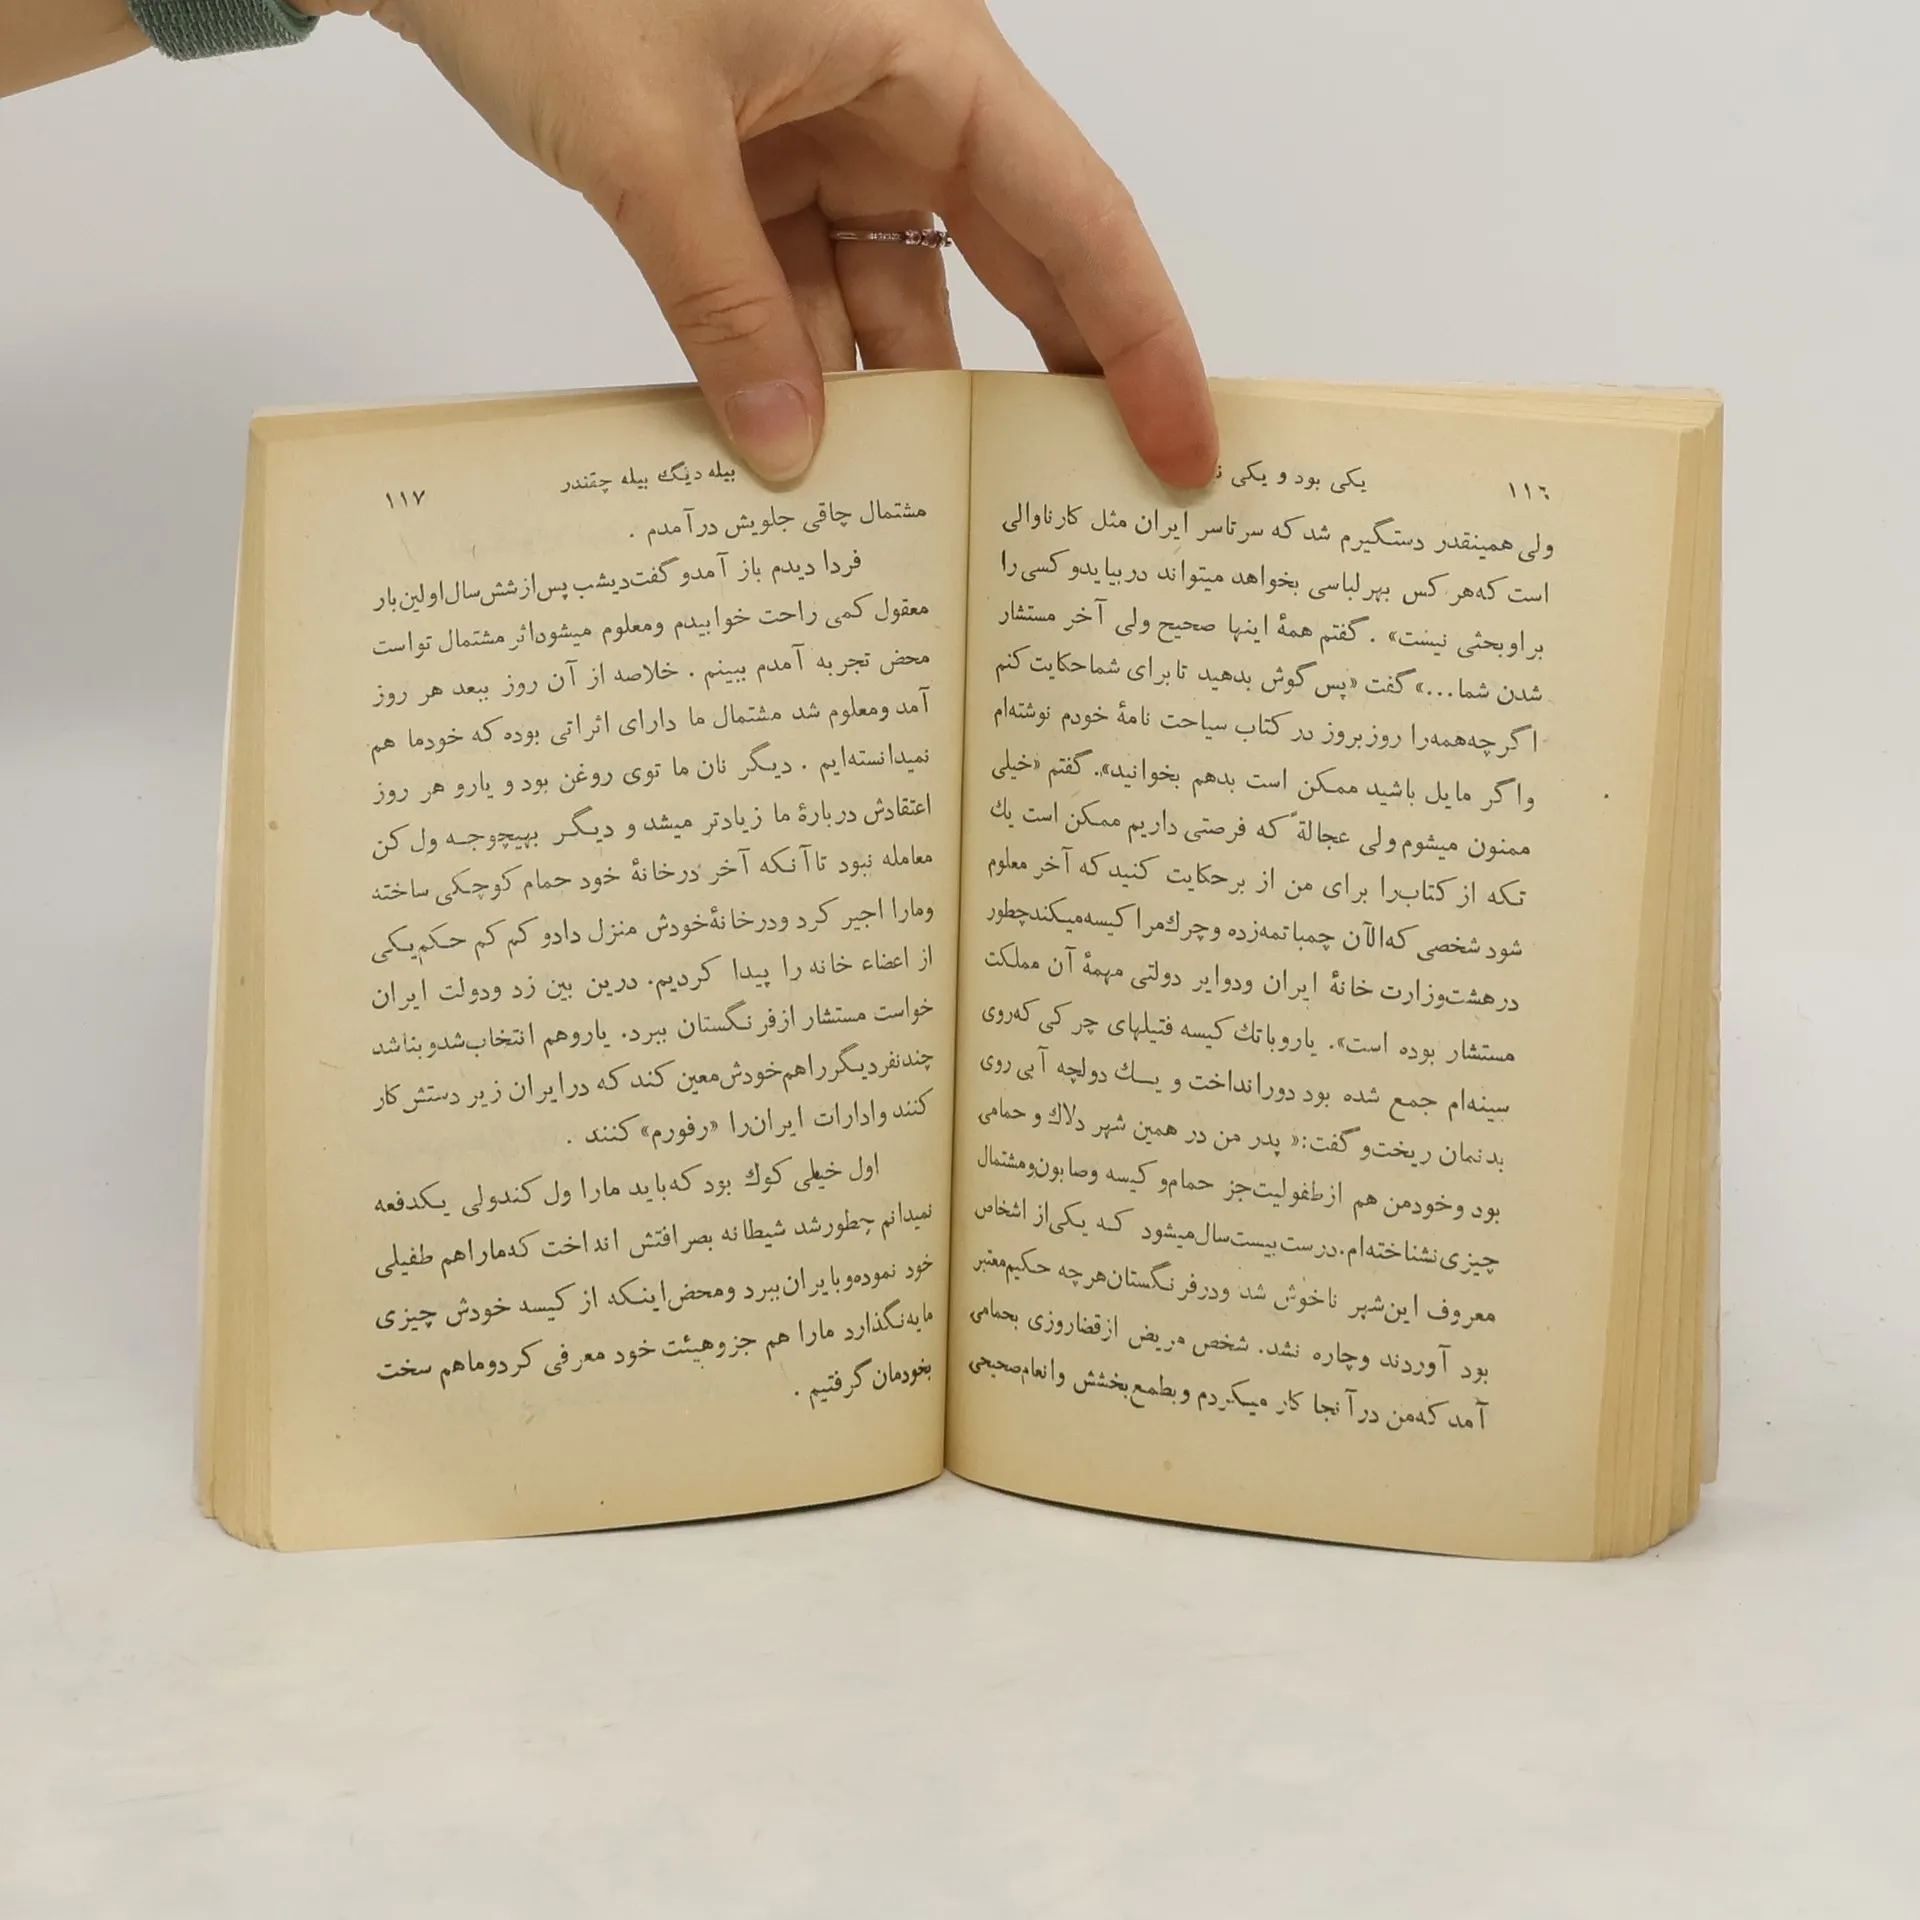 ۱۱٦
یکی بود و یکی
ولی همینقدر دستگیرم شد که سرتاسر ایران مثل کارناوالی
است که هر کس بهر لباسی بخواهد میتواند دربیاید و کسی را
براو بحثی نیست» . گفتم همهٔ اینها صحیح ولی آخر مستشار
شدن شما...» گفت «پس گوش بدهید تا برای شما حکایت کنم
اگرچه همه را روز بروز در کتاب سیاحت نامهٔ خودم نوشته‌ام
واگر مایل باشید ممکن است بدهم بخوانید». گفتم «خیلی
ممنون میشوم ولی عجالةً که فرصتی داریم ممکن است یك
تکه از کتاب را برای من از بر حکایت کنید که آخر معلوم
شود شخصی که الآن چمباتمه زده و چرك مرا کیسه میکند چطور
در هشت وزارت خانهٔ ایران ودوایر دولتی مهمهٔ آن مملکت
مستشار بوده است». یارو باتك کیسه فتیلهای چرکی که روی
سینه‌ام جمع شده بود دور انداخت و یك دولچه آبی روی
بدنمان ریخت و گفت:« پدر من در همین شهر دلاك و حمامی
بود و خود من هم از طفولیت جز حمام و کیسه وصابون و مشتمال
چیزی نشناخته‌ام. درست بیست سال میشود که یکی از اشخاص
معروف این شهر ناخوش شد ودر فرنگستان هر چه حکیم معتبر
بود آوردند وچاره نشد. شخص مریض از قضا روزی بحمامی
آمد که من در آنجا کار میکردم و بطمع بخشش وانعام صحیحی
بیله دیگ بیله چقندر
۱۱۷
مشتمال چاقی جلویش درآمدم .
فردا دیدم باز آمدو گفت دیشب پس از شش سال اولین بار
معقول کمی راحت خوابیدم ومعلوم میشود اثر مشتمال تواست
محض تجربه آمدم ببینم . خلاصه از آن روز ببعد هر روز
آمد ومعلوم شد مشتمال ما دارای اثراتی بوده که خود ما هم
نمیدانسته‌ایم . دیگر نان ما توی روغن بود و یارو هر روز
اعتقادش دربارهٔ ما زیادتر میشد و دیگر بهیچوجه ول کن
معامله نبود تا آنکه آخر در خانهٔ خود حمام کوچکی ساخته
ومارا اجیر کرد ودر خانهٔ خودش منزل دادو کم کم حکم یکی
از اعضاء خانه را پیدا کردیم. درین بین زد ودولت ایران
خواست مستشار از فرنگستان ببرد. یاروهم انتخاب شد و بنا شد
چند نفر دیگر را هم خودش معین کند که در ایران زیر دستش کار
کنند وادارات ایران را «رفورم» کنند .
اول خیلی کوك بود که باید مارا ول کند ولی یکدفعه
نمیدانم چطور شد شیطانه بصرافتش انداخت که ماراهم طفیلی
خود نموده وبایران ببرد ومحض اینکه از کیسه خودش چیزی
مایه نگذارد مارا هم جزو هیئت خود معرفی کرد وما هم سخت
بخودمان گرفتیم .